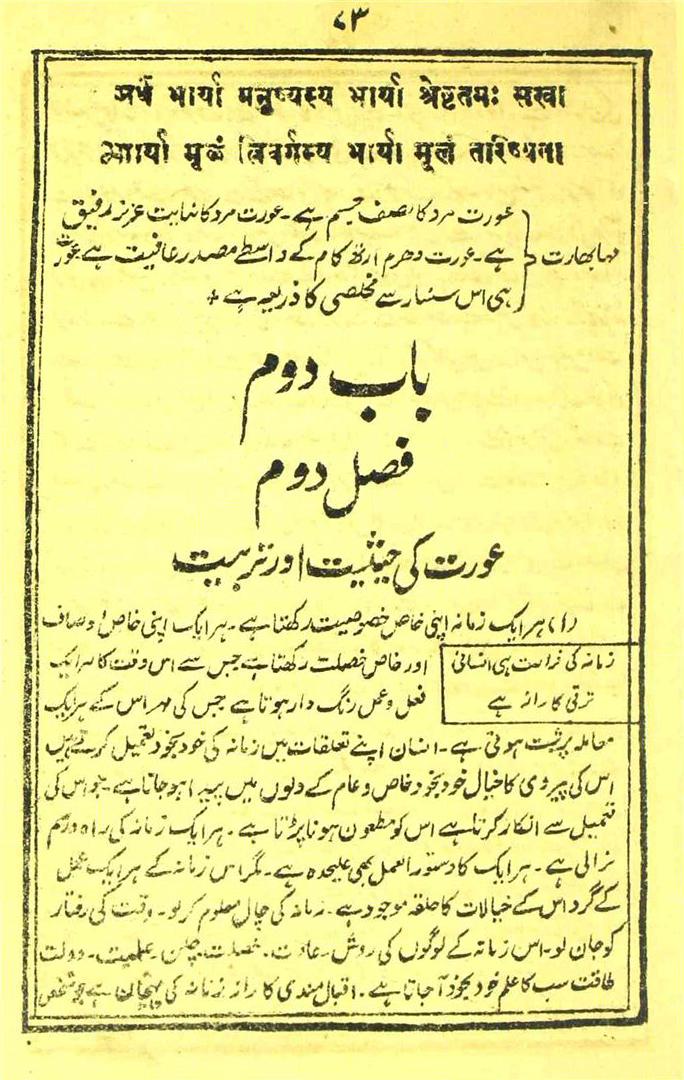 ۸۳
अर्धं भार्या मनुष्यस्य भार्या श्रेष्टतमः सखा
भार्या मूलं त्रिवर्गस्य भार्या मूलं तारिष्यता
عورت مرد کا نصف جسم ہے۔ عورت مرد کا نہایت عزیز رفیق
مہابھارت ہے۔ عورت دھرم ارتھ کام کے واسطے مصدر عافیت ہے عورت
ہی اس سنسار سے مخلصی کا ذریعہ ہے +
باب دوم
فصل دوم
عورت کی حیثیت اور تربیت
(۱) ہر ایک زمانہ اپنی خاص خصوصیت رکھتا ہے۔ ہر ایک اپنی خاص اوصاف
زمانہ کی فراست ہی انسانی
ترقی کا راز ہے
اور خاص خصلت رکھتا ہے جس سے اس وقت کا ہر ایک
فعل و عمل رنگ دار ہوتا ہے جس کی مہر اس کے ہر ایک
معاملہ پر ثبت ہوتی ہے۔ انسان اپنے تعلقات میں زمانہ کی خود بخود تعمیل کرتے ہیں
اس کی پیروی کا خیال خود بخود خاص و عام کے دلوں میں پیدا ہو جاتا ہے۔ جو اس کی
تعمیل سے انکار کرتا ہے اس کو مطعون ہونا پڑتا ہے۔ ہر ایک زمانہ کی راہ و رسم
نرالی ہے۔ ہر ایک کا دستور العمل بھی علیحدہ ہے۔ مگر اس زمانہ کے ہر ایک عمل
کے گرد اس کے خیالات کا حلقہ موجود ہے۔ زمانہ کی چال معلوم کر لو۔ وقت کی رفتار
کو جان لو۔ اس زمانہ کے لوگوں کی روش۔ عادت۔ خصلت۔ چلن۔ علمیت۔ دولت
طاقت سب کا علم خود بخود آ جاتا ہے۔ اقبال مندی کا راز زمانہ کی پہچان ہے جو شخص